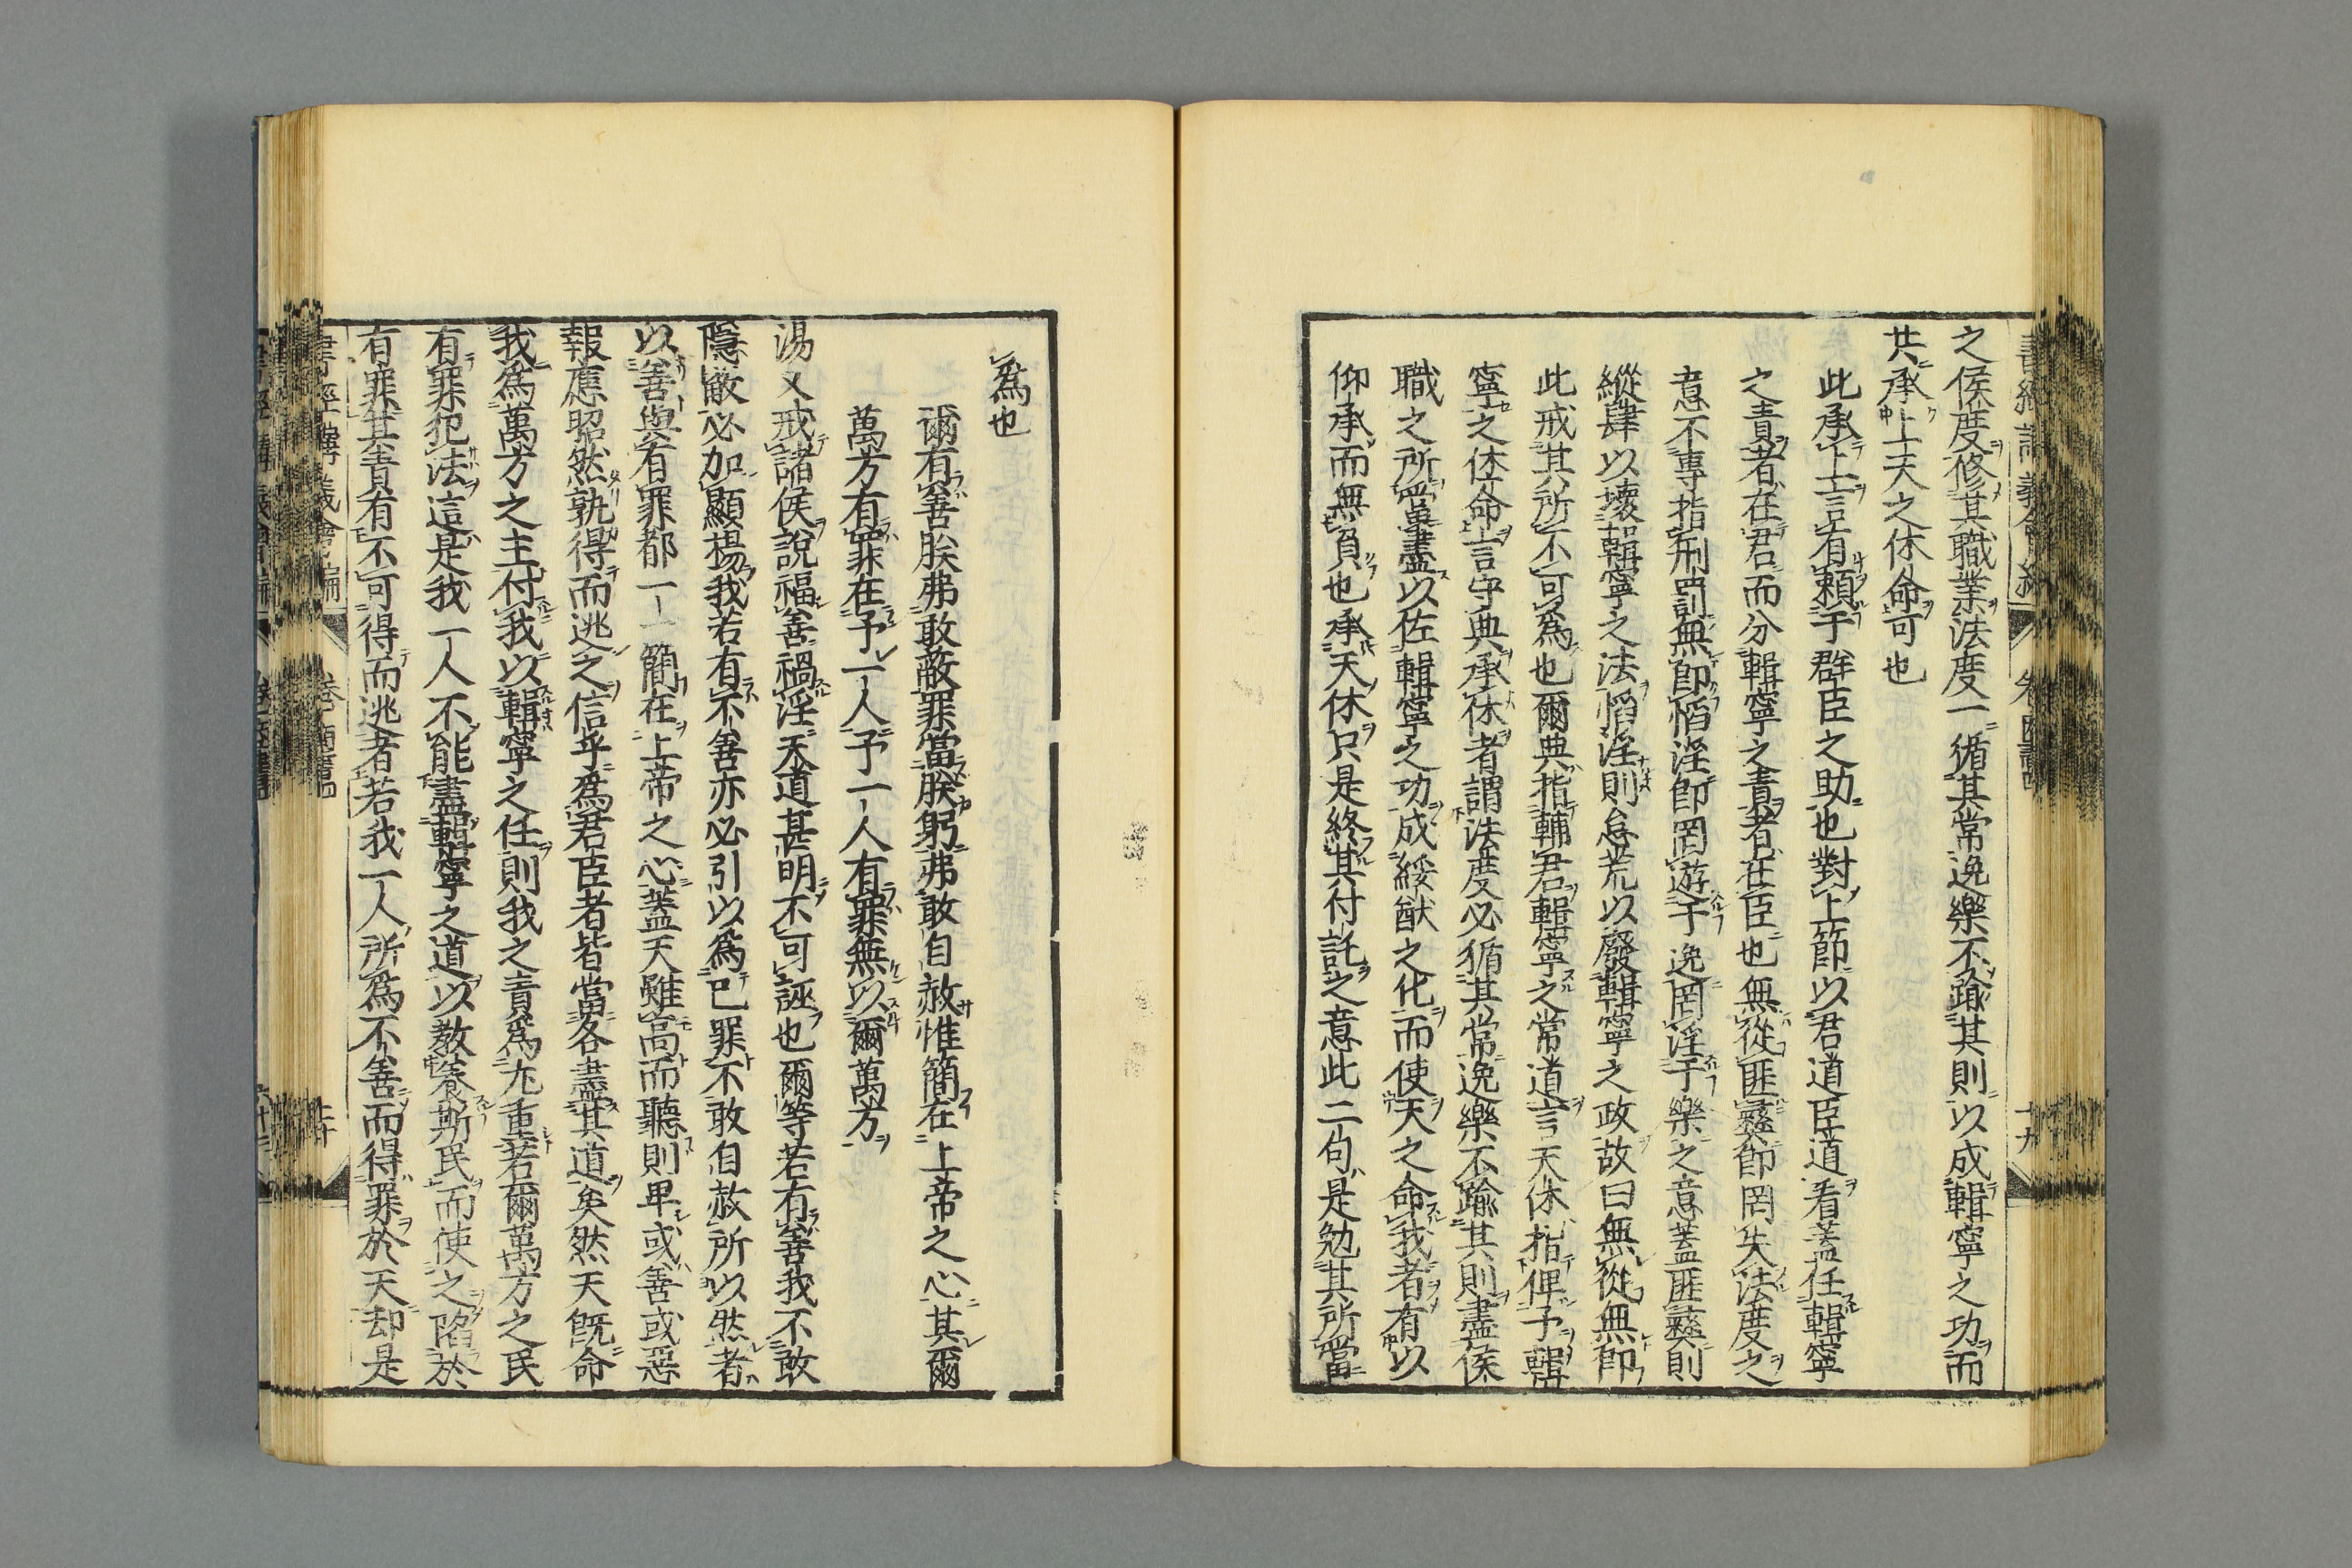 之侯度修其職業法度一循其常逸樂不踰其則以成輯寧之功而
共承上天之休命可也
此承上言有賴于群臣之助也對上節以君道臣道看蓋任輯寧
之責者在君而分輯寧之責者在臣也無從匪彝節罔失法度之
意不專指刑罰無即慆淫節罔遊于逸罔淫于樂之意蓋匪彝則
縱肆以壞輯寧之法慆淫則怠荒以廢輯寧之政故曰無從無即
此戒其所不可為也爾典指輔君輯寧之常道言天休指俾予輯
寧之休命言守典承休者謂法度必循其常逸樂不踰其則盡侯
職之所當盡以佐輯寧之功成綏猷之化而使天之命我者有以
仰承而無負也承天休只是終其付託之意此二句是勉其所當
為也
爾有善朕弗敢蔽罪當朕躬弗敢自赦惟簡在上帝之心其爾
萬方有罪在予一人予一人有罪無以爾萬方
湯又戒諸侯說福善禍淫天道甚明不可誣也爾等若有善我不敢
隱蔽必加顯揚我若有不善亦必引以為己罪不敢自赦所以然者
以善與有罪都一一簡在上帝之心蓋天雖高而聽則卑或善或惡
報應昭然孰得而逃之信乎為君臣者皆當各盡其道矣然天既命
我為萬方之主付我以輯寧之任則我之責為尤重若爾萬方之民
有罪犯法這是我一人不能盡輯寧之道以教養斯民而使之陷於
有罪其責有不可得而逃者若我一人所為不善而得罪於天却是
書經講義會編
卷商書